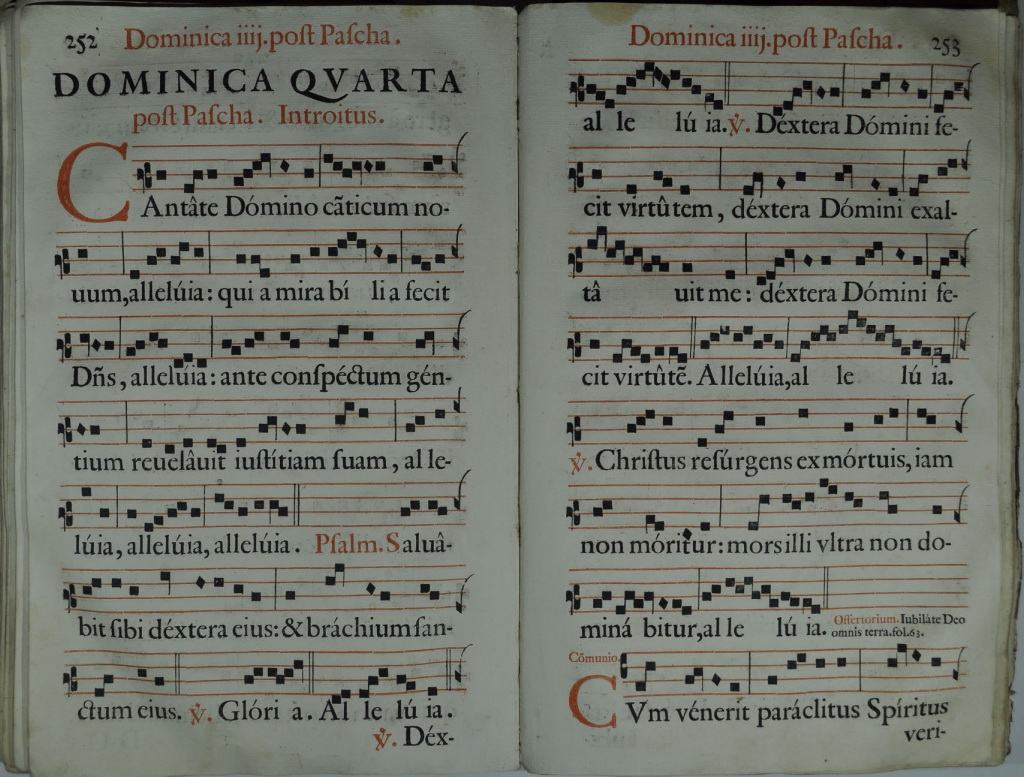 252 Dominica iiij. post Pascha.
DOMINICA QVARTA
post Pascha. Introitus.
CAntâte Dómino cãticum no-
uum, allelúia: qui a mira bí li a fecit
Dñs, allelúia: ante conspéctum gén-
tium reuelâuit iustítiam suam, al le-
lúia, allelúia, allelúia. Psalm. Saluâ-
bit sibi déxtera eius: & bráchium san-
ctum eius. ℣. Glóri a. Al le lú ia.
℣. Déx-
Dominica iiij. post Pascha. 253
al le lú ia. ℣. Déxtera Dómini fe-
cit virtûtem, déxtera Dómini exal-
tâ uit me: déxtera Dómini fe-
cit virtûtẽ. Allelúia, al le lú ia.
℣. Christus resúrgens ex mórtuis, iam
non móritur: mors illi vltra non do-
miná bitur, al le lú ia. Offertorium. Iubiláte Deo
omnis terra. fol. 63.
Cõmunio.
CVm vénerit paráclitus Spíritus
veri-